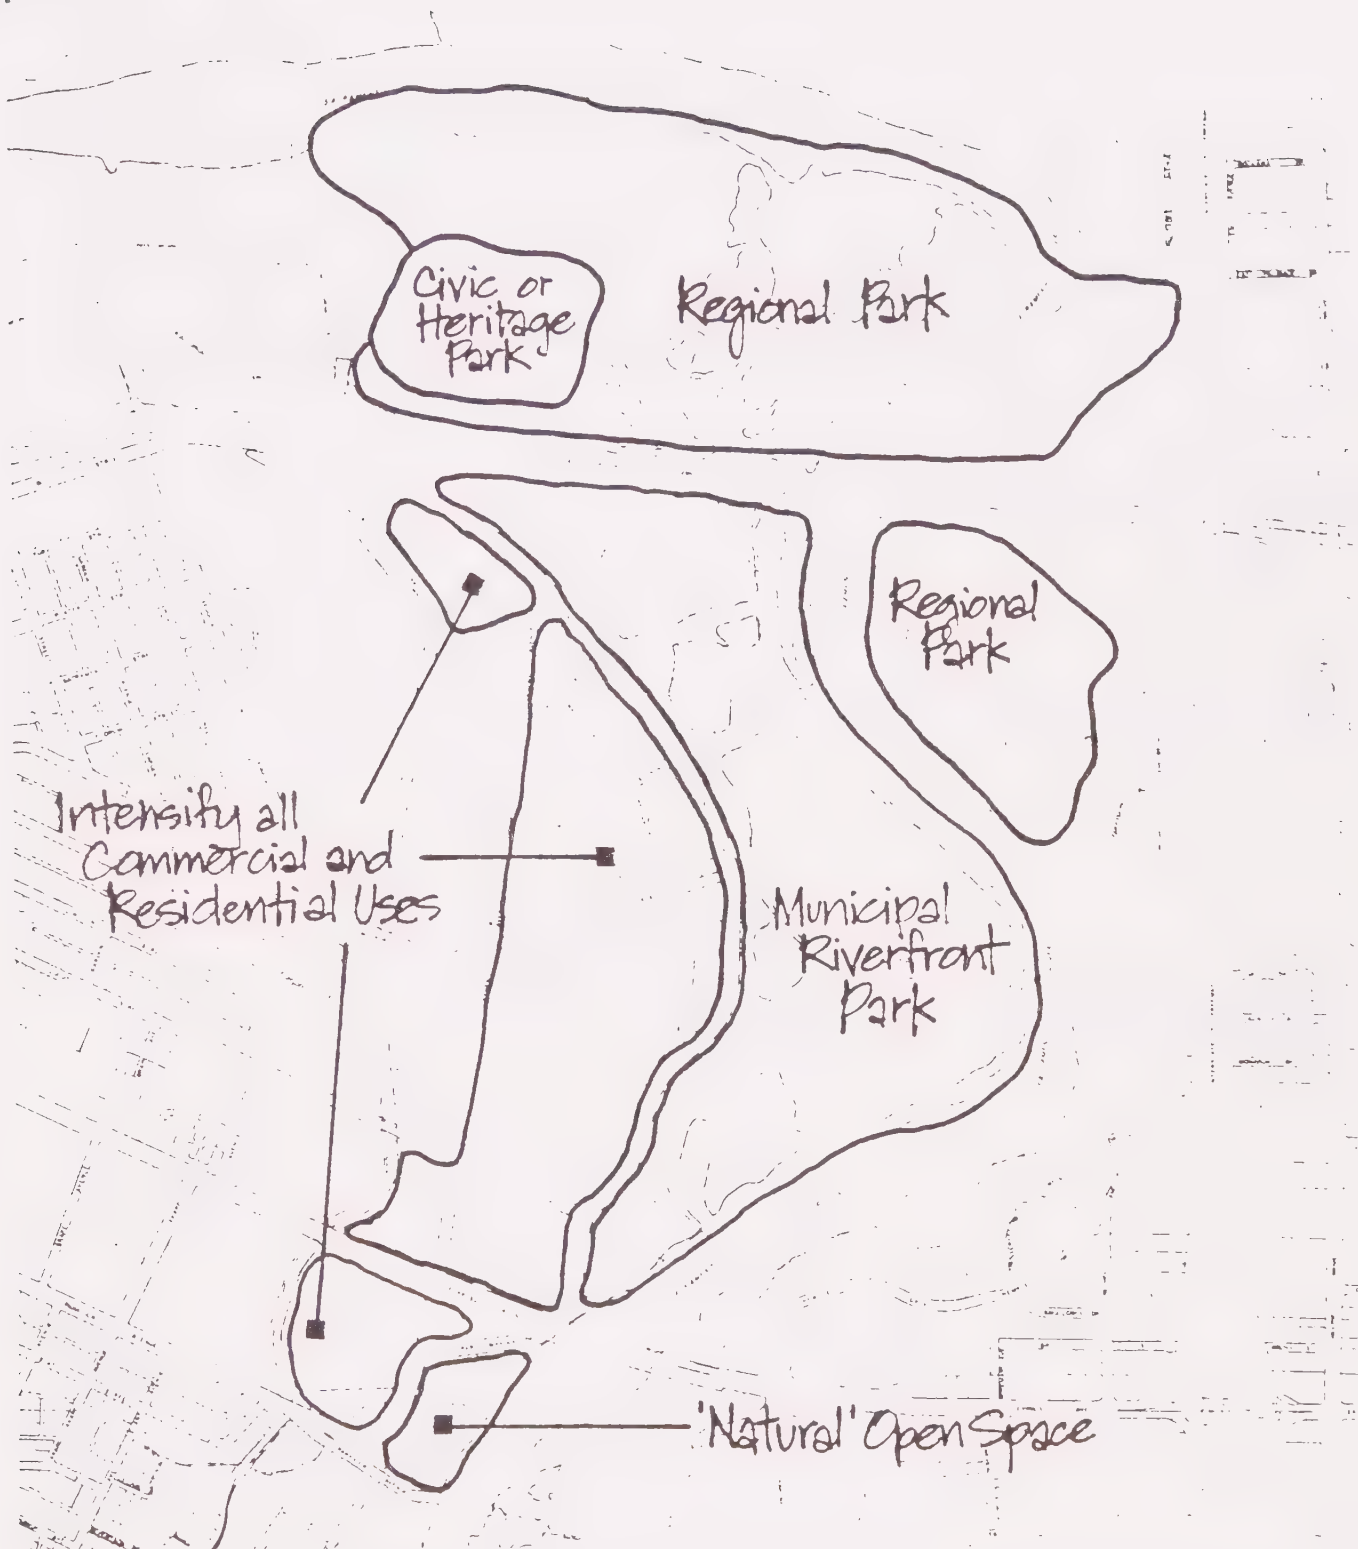 Civic or
Heritage
Park
Regional Park
Regional
Park
Intensify all
Commercial and
Residential Uses
Municipal
Riverfront
Park
'Natural' Open Space